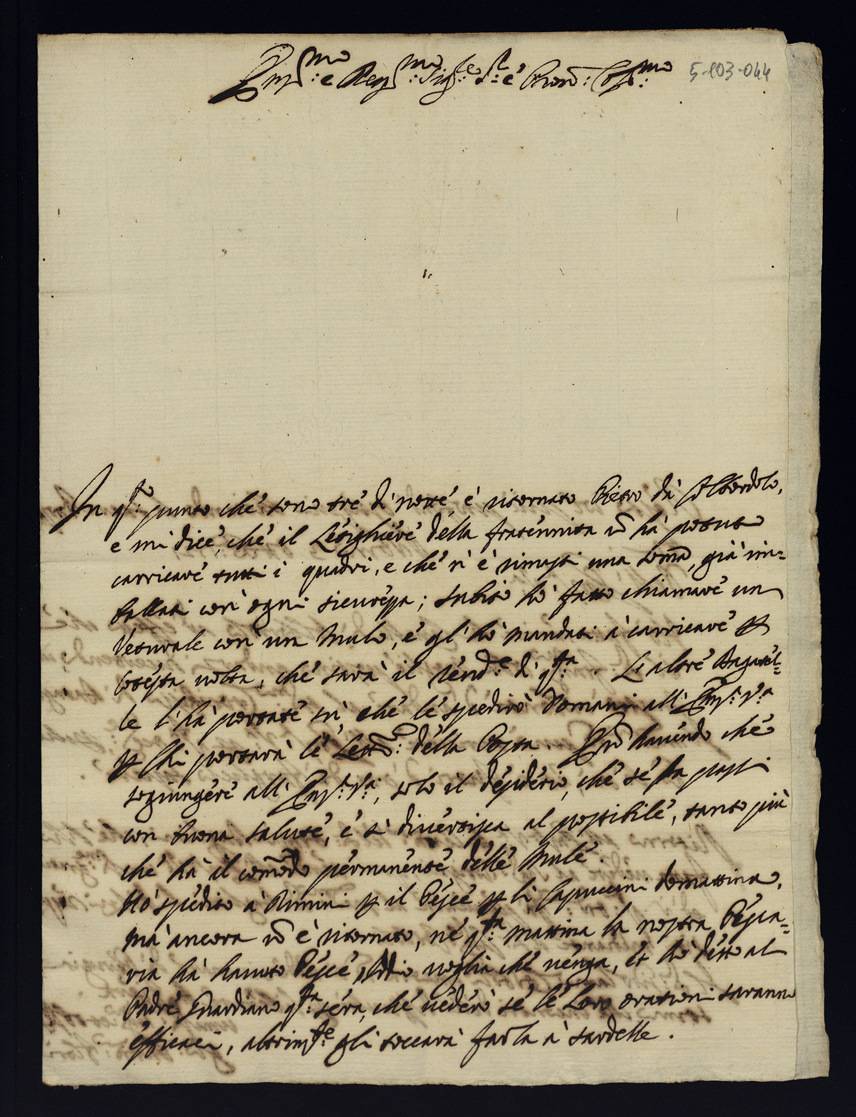 Em.mo e Reu.mo Sig.re S.re e Pron: Col.mo
5-103-044
In q.to punto che sono tre di notte, è ritornato Pietro da
e mi dice, che il della fraternita nō hà potuto
carricare tutti i quadri, e che vi è rimasti una soma, già im=
ballati con ogni sicurezza; subito hò fatto chiamare un
Vetturale con un Mulo, e gl'hò mandati à carricare p
cotesta volta, che sarà il di q.ta. L'altre Bagatel-
le l'hà portate sù, che le spedirò domani all'Em.za V.ra
p chi portarà le Lett.e della Posta. Nō hauendo che
sogiungere all'Em.za V.ra, solo il desiderio, che se la passi
con buona salute, e si diuertisca al possibile, tanto più
che hà il comōdo permanente delle Mule.
Hò spedito à Rimini p il Pesce p li Capuccini domattina,
mà ancora nō è ritornato, ne q.ta mattina la nostra Pesca=
ria hà hauuto Pesce, Iddio voglia che venga, et hò detto al
Padre Guardiano q.ta sera, che vederò se le Loro orationi saranno
efficaci, altrim.te gli toccarà farla à sardelle.